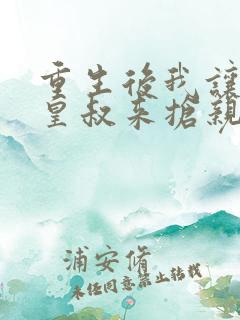 重生後我讓
皇叔來搶親
浦安脩
未任同意禁止轉載